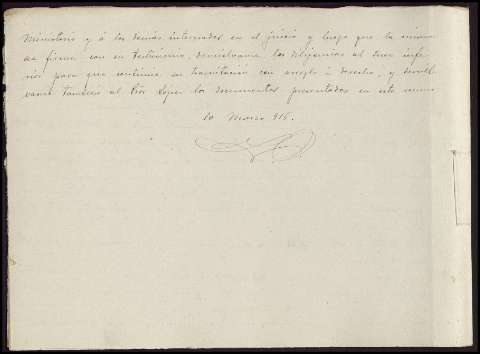 Ministerio y á los demás interesados en el juicio y luego que la misma
sea firme con su testimonio, devuélvanse las diligencias al Juez infe-
rior para que continúe su tramitación con arreglo á derecho, y devuél-
vanse también al Prór Lopez los documentos presentados en esta
10 Marzo 915.